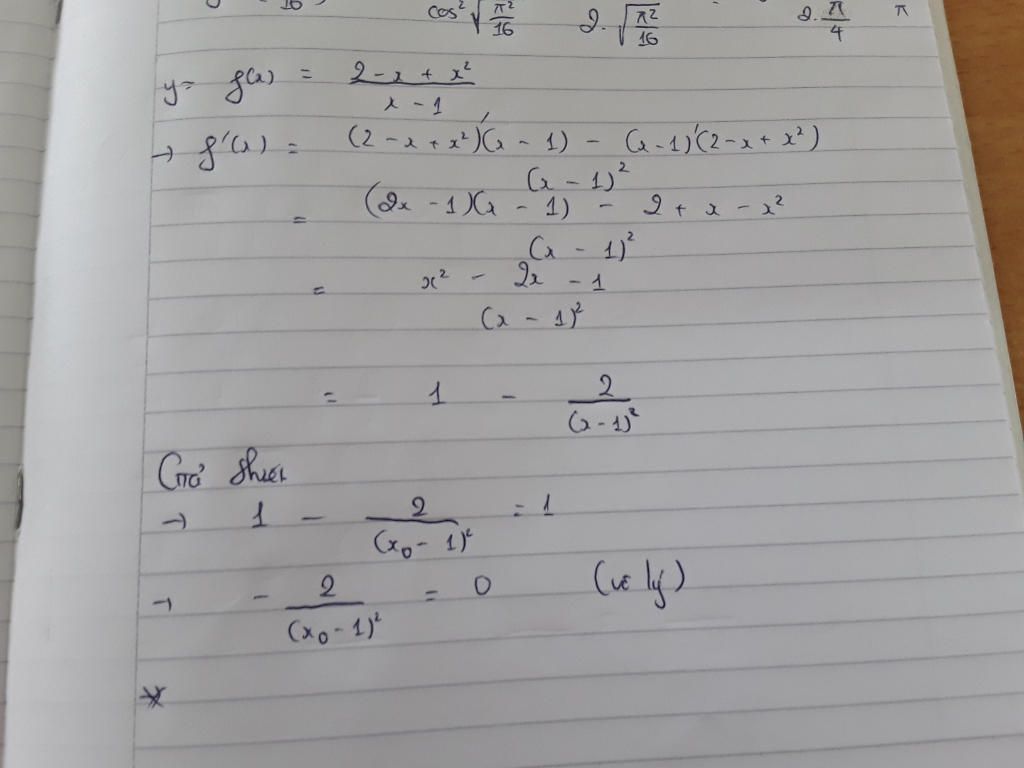 16
cos² √(π²/16)    2.√(π²/16)    2.π/4    π
y = f(x) = (2 - x + x²)/(x - 1)
→ f'(x) = ((2 - x + x²)'(x - 1) - (x - 1)'(2 - x + x²))/(x - 1)²
= ((2x - 1)(x - 1) - 2 + x - x²)/(x - 1)²
= (x² - 2x - 1)/(x - 1)²
= 1 - 2/(x - 1)²
Giả thiết
→ 1 - 2/(x₀ - 1)² = 1
→ - 2/(x₀ - 1)² = 0 (vô lý)